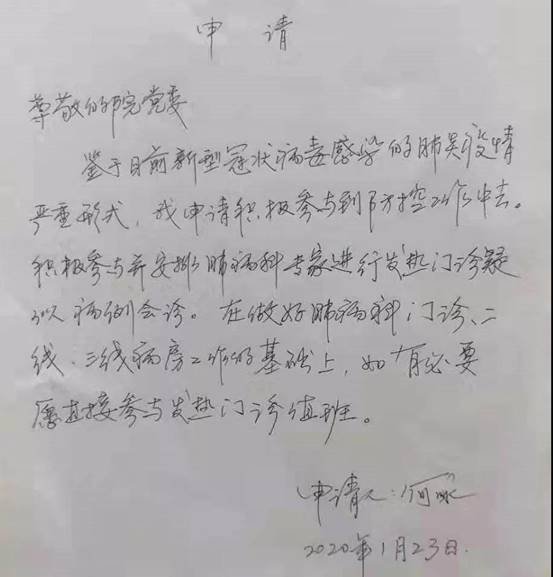 申 请
尊敬的院党委
鉴于目前新型冠状病毒感染的肺炎疫情
严重形式，我申请积极参与到防控工作中去。
积极参与并安排肺病科专家进行发热门诊疑
似病例会诊。在做好肺病科门诊、二
线、三线病房工作的基础上，如有必要
愿直接参与发热门诊值班。
申请人：何
2020年1月23日.